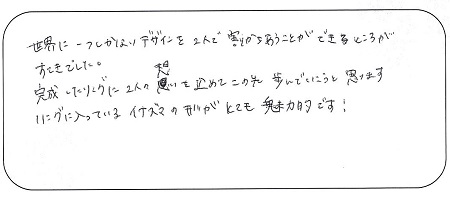 世界に一つしかないデザインを2人で分かちあうことができるところが
すてきでした。
完成したリングに2人の想いを込めてこの先歩んでいこうと思います
リングに入っているイナズマの形がとても魅力的です！